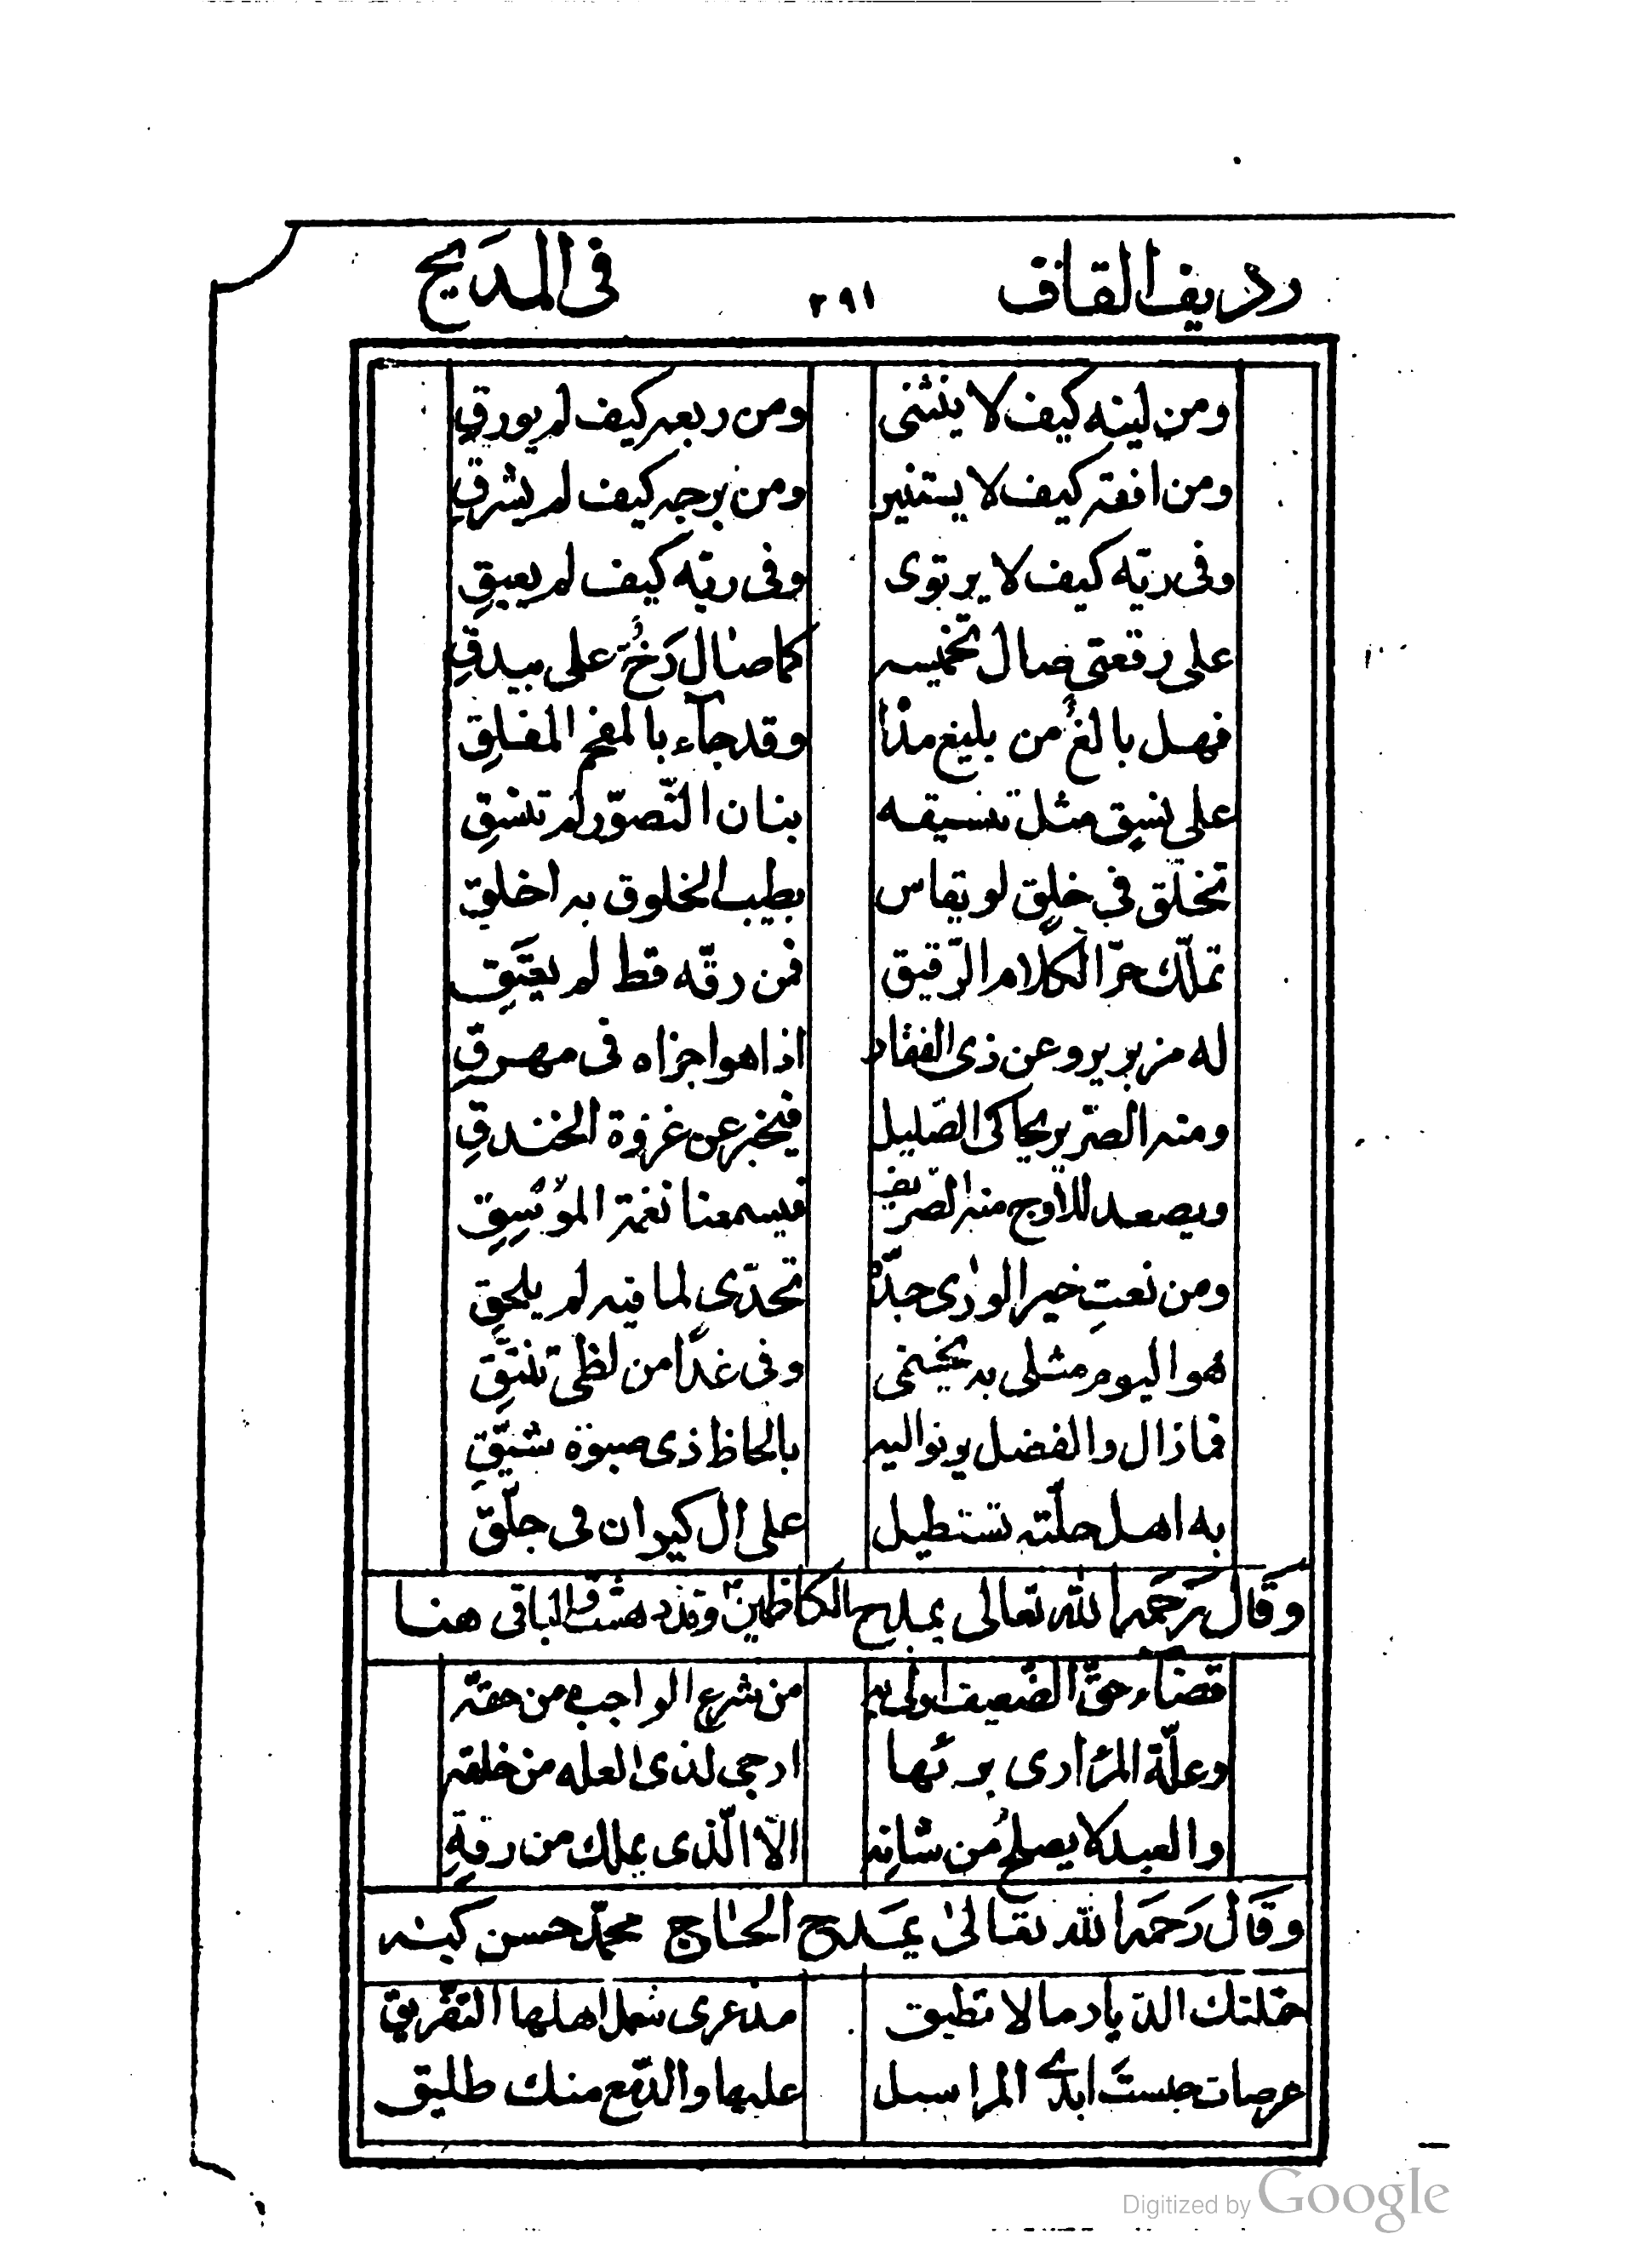 رديف القاف ٢٩١ في المديح
ومن لينه كيف لا ينثني ومن ربعه كيف لم يورقِ
ومن افقه كيف لا يستنير ومن برجه كيف لم يشرقِ
وفي ريّه كيف لا يرتوى وفي ريّه كيف لم يعبقِ
على رقعتي صال تخميسه كما صال رَخٌّ على بيدقِ
فهل بالغٌ من بليغ مذا وقد جآء بالمفحم المفلقِ
على نسقٍ مثل تنسيقه بنان التّصوّر لم تنسقِ
تخلّق في خلقٍ لو يقاس بطيب الخلوق به اخلقِ
تملّك حرّ الكلام الرّقيق فمن رقّه قط لم يعتقِ
له مزبر يروعن ذى الفقار اذا هو اجراه فى مهرقِ
ومنه الصّرير يحاكى الصّليل فيخبر عن غزوة الخندقِ
ويصعد للاوج منه الصّريف فيسمعنا نغمة الموسقِ
ومن نعتِ خير الورى جدّه تحدّى لما فيه لم يلحقِ
هو اليوم مثلى به يحتمى وفى غدًا من لظى تنتقِ
فما زال والفضل يرنو اليه بالحاظ ذى صبوة شيّقِ
به اهل حلّته تستطيل على ال كيوان فى جلّق
وقال رحمه الله تعالى يمدح الكاظمين وقد هشت الباقى هنا
قضاء حقّ الضّعيف اولى به من شرع الواجب من حقّه
وعلّة المرء ارى برئها ارجى لذى العله من خلقه
والعبد لا يصلحُ من شانه الّا الّذى يملك من رقّهِ
وقال رَحمه الله تعالىٰ يمَدح الحاج محمّد حسن كبّه
حمّلتك الدّيار ما لا تطيق مذ عرى شمل اهلها التّفريق
عرصات حبستَ ايدى المراسيل عليها والدّمع منك طليق
Digitized by Google